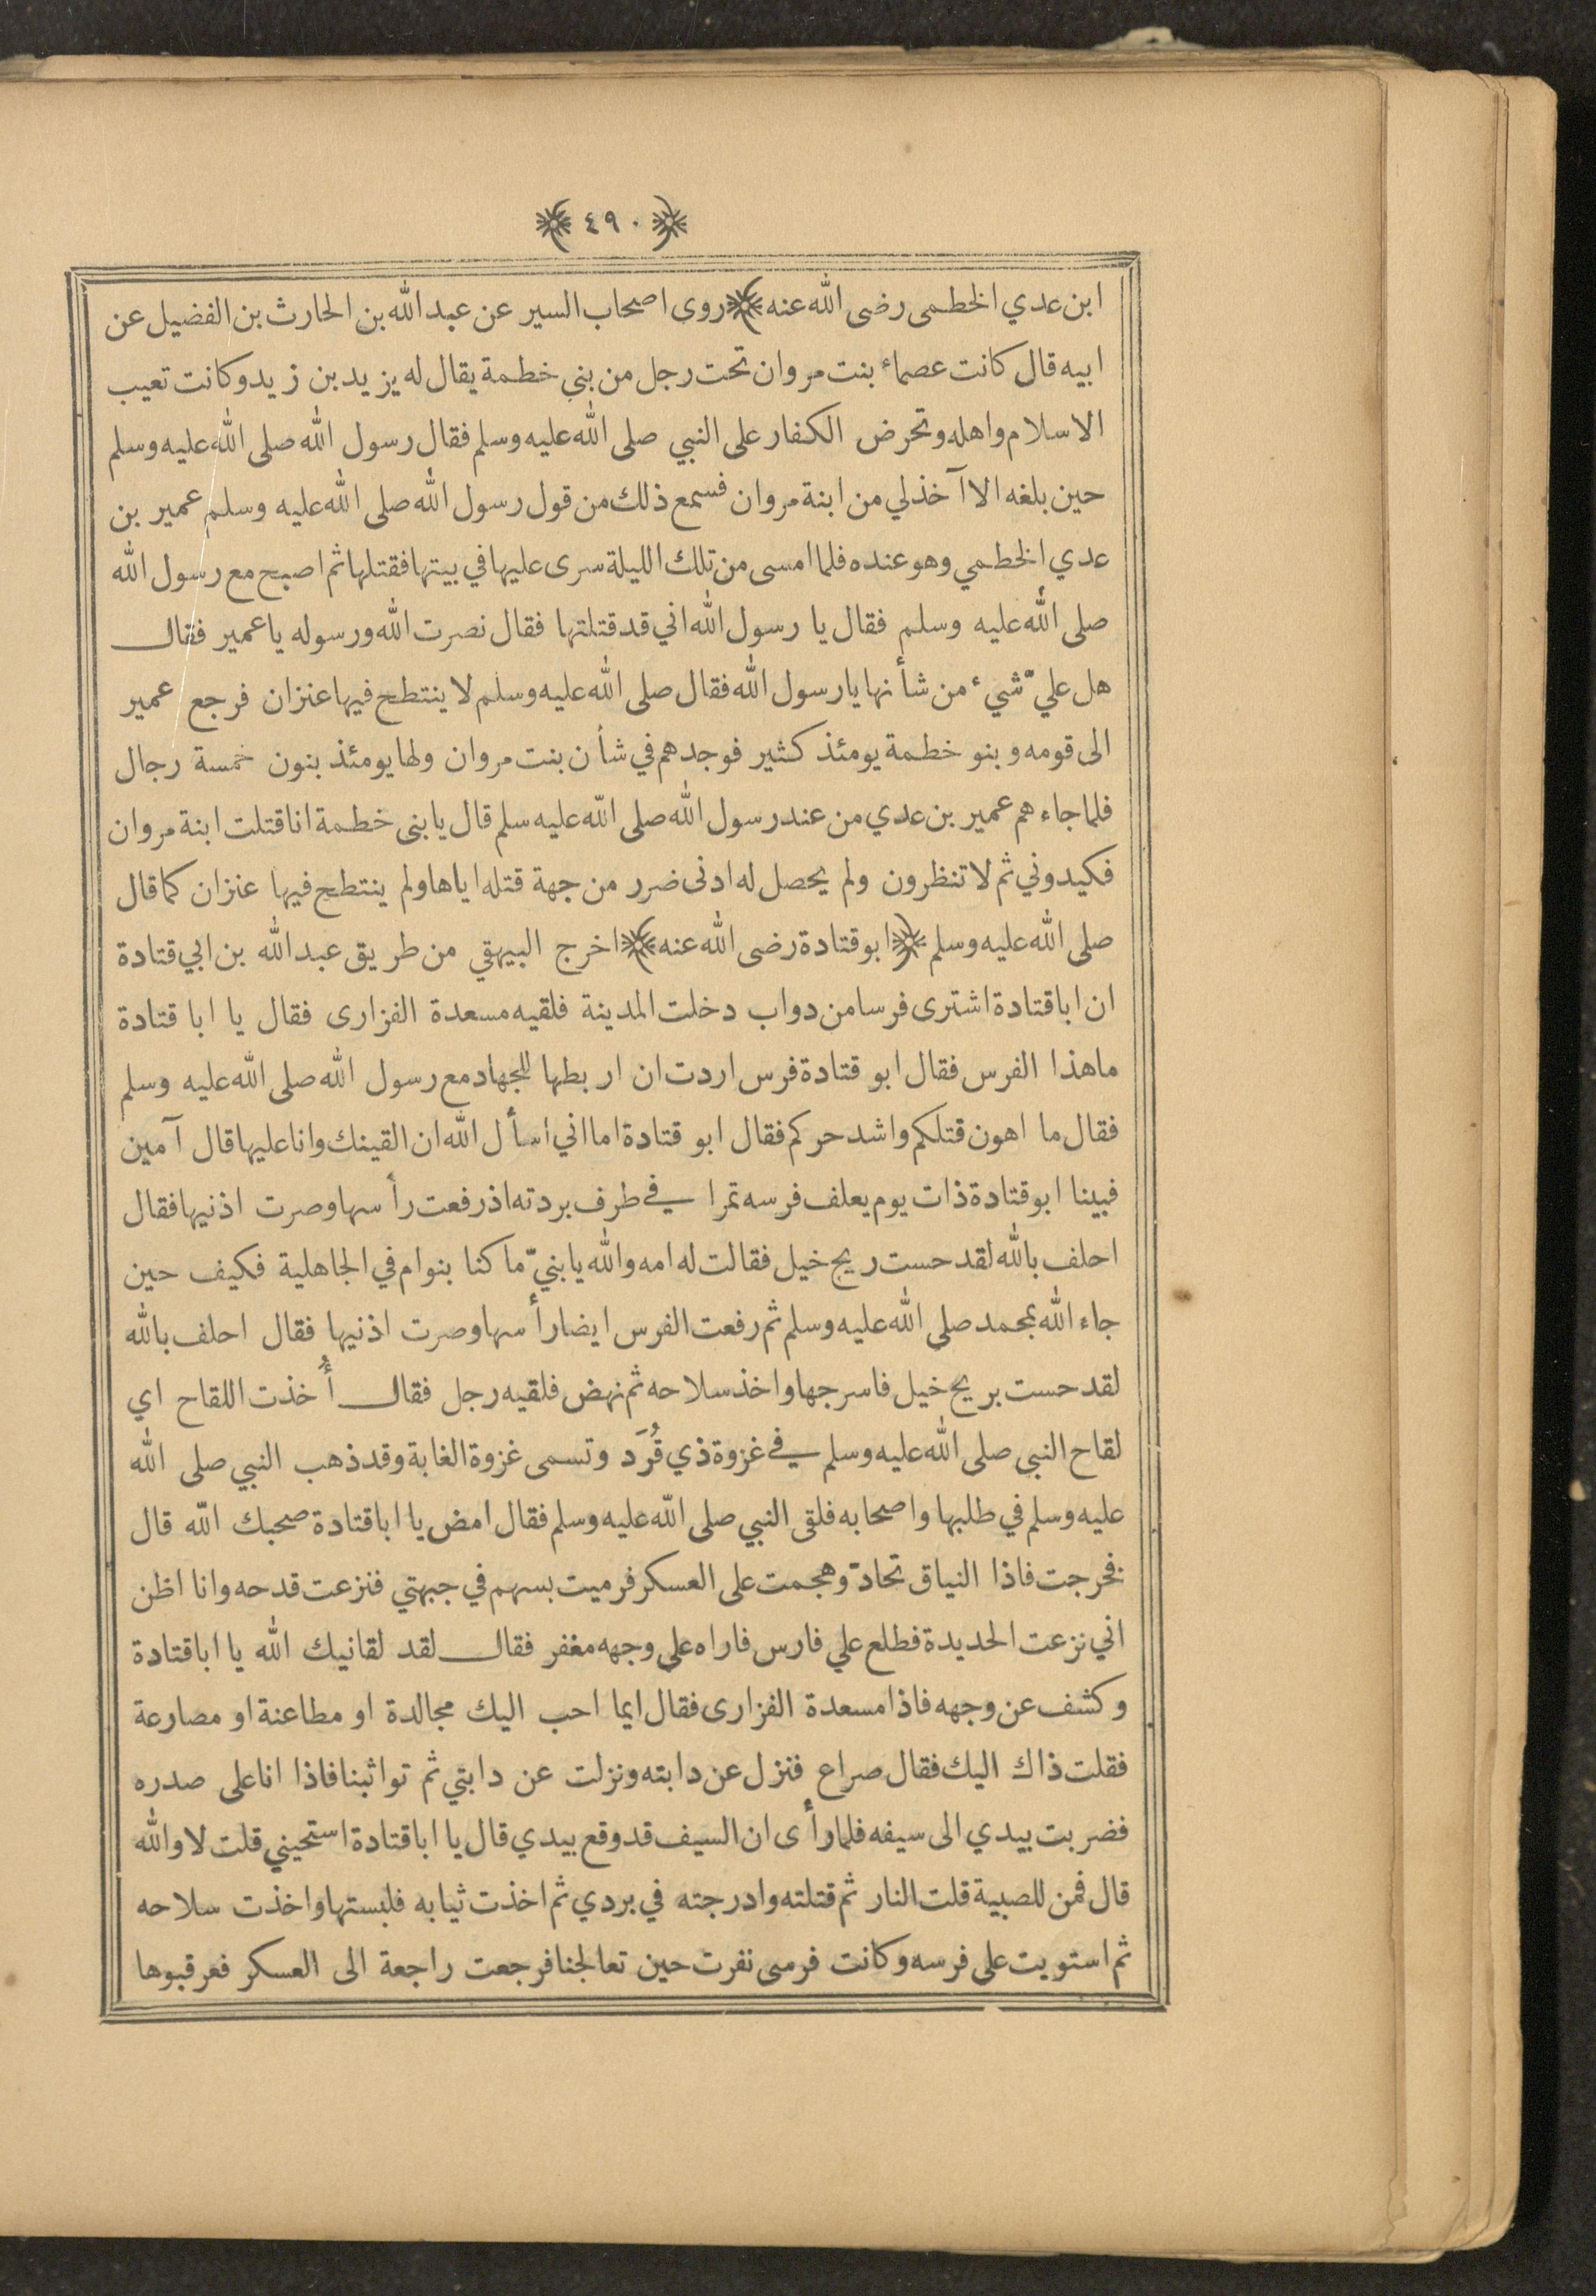 ﴿ ٤٩٠ ﴾
ابن عدي الخطمى رضى الله عنه ﴾ روى اصحاب السير عن عبد الله بن الحارث بن الفضيل عن
ابيه قال كانت عصماء بنت مروان تحت رجل من بني خطمة يقال له يزيد بن زيد وكانت تعيب
الاسلام واهله وتحرض الكفار على النبي صلى الله عليه وسلم فقال رسول الله صلى الله عليه وسلم
حين بلغه الا آخذ لي من ابنة مروان فسمع ذلك من قول رسول الله صلى الله عليه وسلم عمير بن
عدي الخطمي وهو عنده فلما امسى من تلك الليلة سرى عليها في بيتها فقتلها ثم اصبح مع رسول الله
صلى الله عليه وسلم فقال يا رسول الله اني قد قتلتها فقال نصرت الله ورسوله يا عمير فقال
هل عليّ شيء من شأنها يا رسول الله فقال صلى الله عليه وسلم لا ينتطح فيها عنزان فرجع عمير
الى قومه وبنو خطمة يومئذ كثير فوجدهم في شأن بنت مروان ولها يومئذ بنون خمسة رجال
فلما جاءهم عمير بن عدي من عند رسول الله صلى الله عليه سلم قال يا بنى خطمة انا قتلت ابنة مروان
فكيدوني ثم لا تنظرون ولم يحصل له ادنى ضرر من جهة قتله اياها ولم ينتطح فيها عنزان كما قال
صلى الله عليه وسلم ﴿ ابو قتادة رضى الله عنه ﴾ اخرج البيهقي من طريق عبد الله بن ابي قتادة
ان ابا قتادة اشترى فرسا من دواب دخلت المدينة فلقيه مسعدة الفزارى فقال يا ابا قتادة
ما هذا الفرس فقال ابو قتادة فرس اردت ان اربطها للجهاد مع رسول الله صلى الله عليه وسلم
فقال ما اهون قتلكم واشد حركم فقال ابو قتادة اما اني اسأل الله ان القينك وانا عليها قال آمين
فبينا ابو قتادة ذات يوم يعلف فرسه تمرا في طرف بردته اذ رفعت رأسها وصرت اذنيها فقال
احلف بالله لقد حست ريح خيل فقالت له امه والله يا بنيّ ما كنا بنوام في الجاهلية فكيف حين
جاء الله بمحمد صلى الله عليه وسلم ثم رفعت الفرس ايضا رأسها وصرت اذنيها فقال احلف بالله
لقد حست بريح خيل فاسرجها واخذ سلاحه ثم نهض فلقيه رجل فقال أُخذت اللقاح اي
لقاح النبى صلى الله عليه وسلم في غزوة ذي قُرَد وتسمى غزوة الغابة وقد ذهب النبي صلى الله
عليه وسلم في طلبها واصحابه فلقى النبي صلى الله عليه وسلم فقال امض يا ابا قتادة صحبك الله قال
فخرجت فاذا النياق تحادّ وهجمت على العسكر فرميت بسهم في جبهتي فنزعت قدحه وانا اظن
اني نزعت الحديدة فطلع علي فارس فاراه على وجهه مغفر فقال لقد لقانيك الله يا ابا قتادة
وكشف عن وجهه فاذا مسعدة الفزارى فقال ايما احب اليك مجالدة او مطاعنة او مصارعة
فقلت ذاك اليك فقال صراع فنزل عن دابته ونزلت عن دابتي ثم تواثبنا فاذا انا على صدره
فضربت بيدي الى سيفه فلما رأى ان السيف قد وقع بيدي قال يا ابا قتادة استحيني قلت لا والله
قال فمن للصبية قلت النار ثم قتلته وادرجته في بردي ثم اخذت ثيابه فلبستها واخذت سلاحه
ثم استويت على فرسه وكانت فرسى نفرت حين تعالجنا فرجعت راجعة الى العسكر فعرقبوها